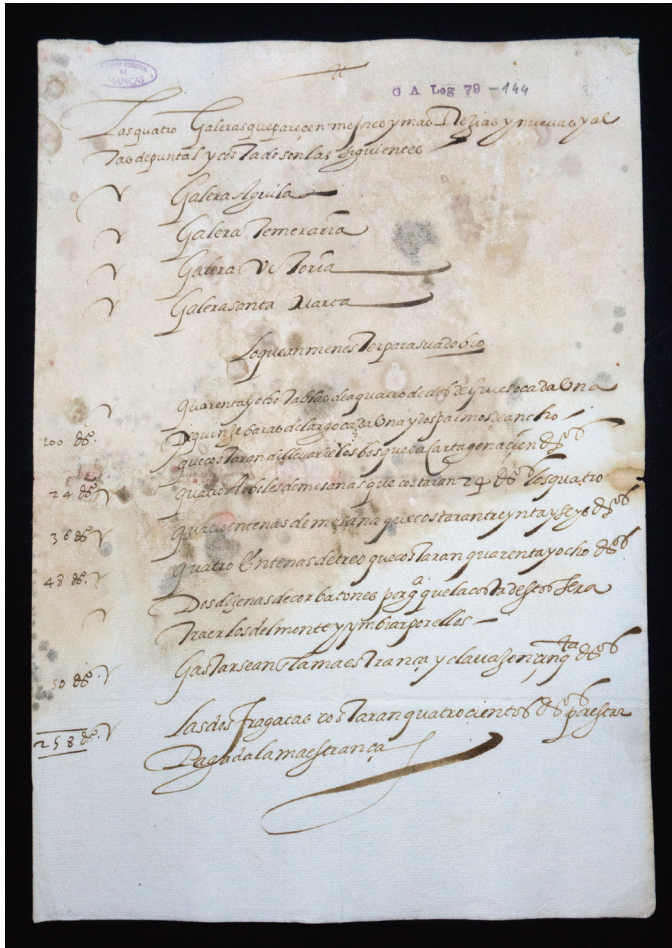 G A Leg 79 - 144
Las quatro Galeras que pareçen mejores y mas Rezias y nuevas y al
tas de puntal y costado son las siguientes
Galera Aguila
Galera Temeraria
Galera Vitoria
Galera santa Marta
Lo que an menester para su adobio
quarenta y ocho tablas de a quatro dedos de grueso cada una
200 ds. De quinse baras de largo cada una y dos palmos de ancho
que costaran çien ds
24 ds. quatro Arboles de mesanas que costaran 24 ds los quatro
36 ds. quatro entenas de mesana que costaran treynta y seys ds
48 ds. quatro Entenas de treo que costaran quarenta y ocho ds
Dos dizenas de corbatones porq que la costa destos sera
traerlos del monte y ymbiar por ellos
50 ds. Gastarse an maestrança y clavasen çinqta ds
258 ds. Las dos fragatas costaran quatrocientos ds por estar
Pagada la maestrança